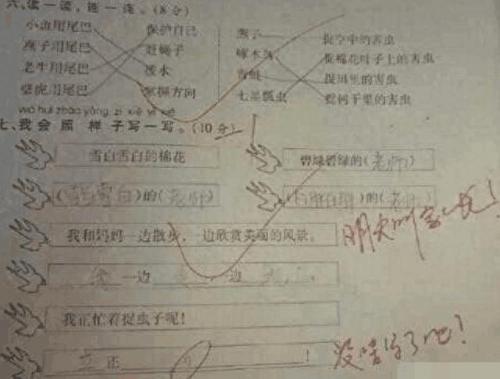 六、读一读，连一连。(8分)
小鱼用尾巴 保护自己 燕子 捉空中的害虫
燕子用尾巴 赶蝇子 啄木鸟 捉棉花叶子上的害虫
老牛用尾巴 拨水 青蛙 捉田里的害虫
壁虎用尾巴 掌握方向 七星瓢虫 捉树干里的害虫
wǒ huì zhào yàng zi xiě yi xiě
七、我会照样子写一写。(10分)
雪白雪白的棉花 碧绿碧绿的(老师)
雪白)的(老师) 的(老师)
我和妈妈一边散步，一边欣赏美丽的风景。
一边 边
明天叫家长！
我正忙着捉虫子呢！
正 ！
没啥写了吧！